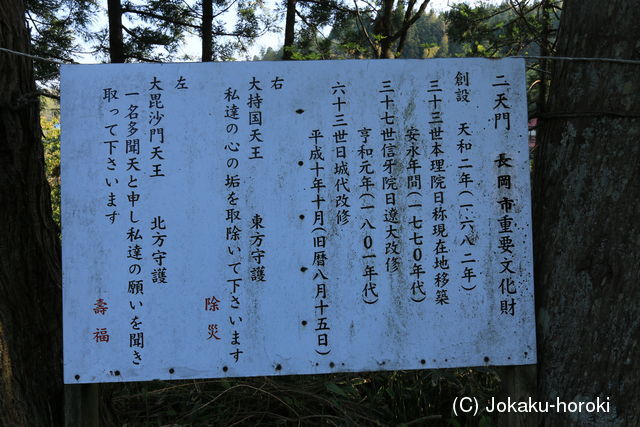 二天門　長岡市重要文化財
創設　天和二年(一六八二年)
三十三世本理院日称現在地移築
安永年間(一七七〇年代)
三十七世信牙院日遼大改修
亨和元年(一八〇一年代)
六十三世日城代改修
平成十年十月(旧暦八月十五日)
右
大持国天王　東方守護
私達の心の垢を取除いて下さいます
除災
左
大毘沙門天王　北方守護
一名多聞天と申し私達の願いを聞き
取って下さいます
寿福
(C) Jokaku-horoki